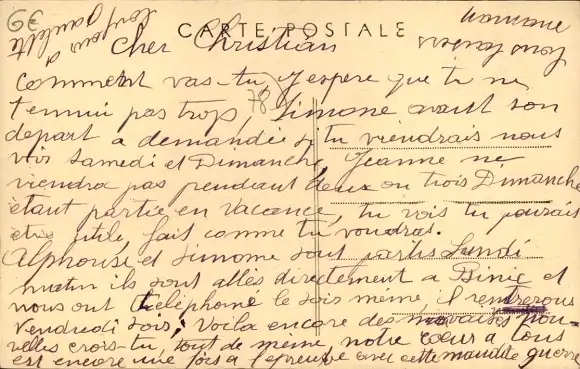 CARTE POSTALE
Cher Christian
comment vas-tu j'espere que tu ne
t'ennui pas trop, Simone avant son
depart a demandée si tu viendrais nous
voir Samedi et Dimanche, Jeanne ne
viendra pas pendant deux ou trois Dimanche
étant partie en vacance, tu vois tu pourais
être utile, fait comme tu voudras.
Alphonse et Simone sont partis Lundi
matin ils sont allés directement a Binic et
nous ont téléphoné le soir meme, il rentrerons
Vendredi soir; Voila encore des mauvaises nou-
velles crois-tu, tout de meme, notre cœur a tous
est encore une fois a l'epreuve avec cette maudite guerre
bonjour a
Paulette
78